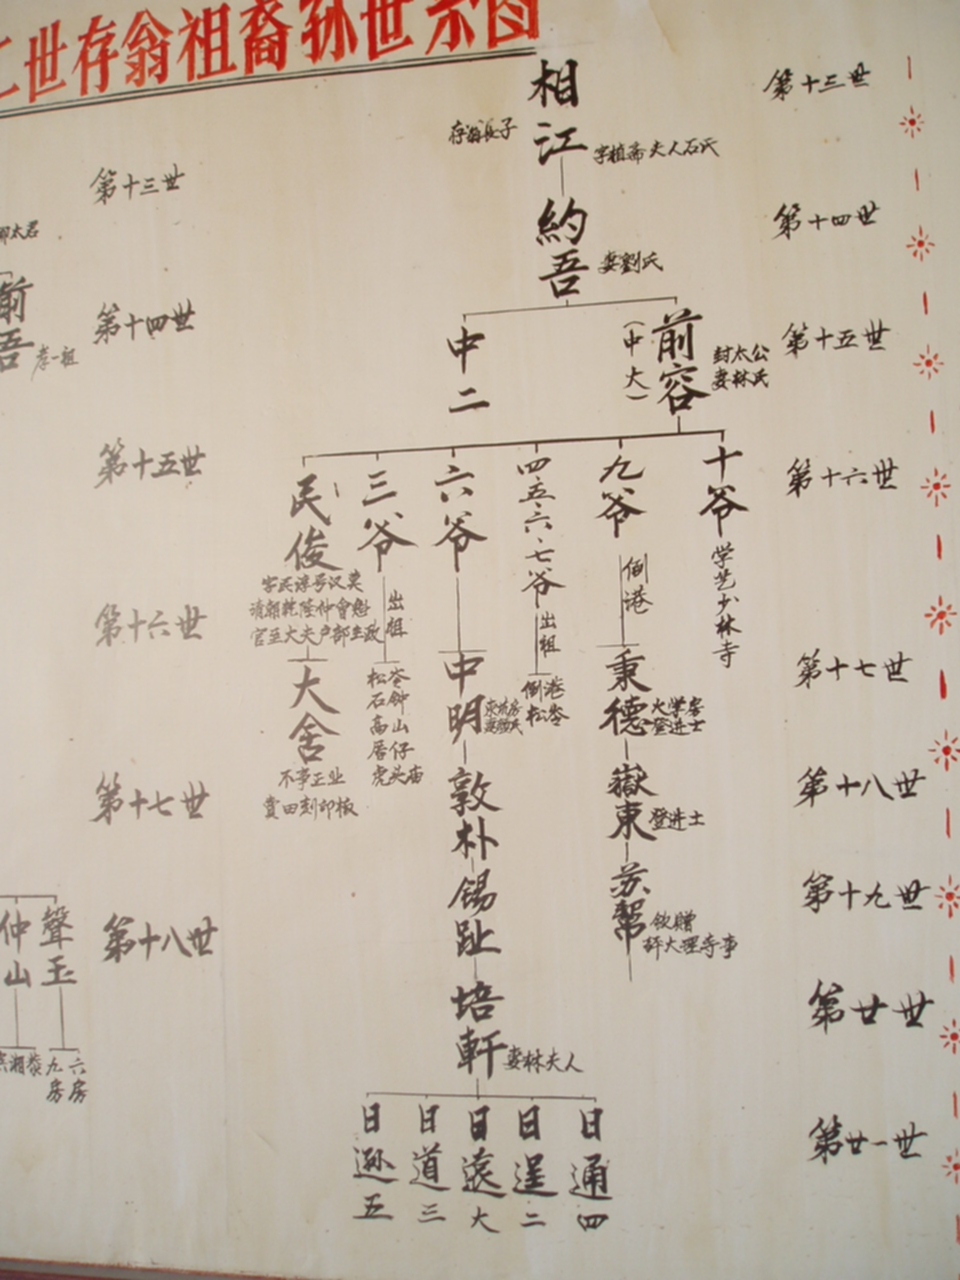 二世存翁祖裔孙世示图
第十三世
相江
存翁长子
字植斋夫人石氏
第十三世
第十四世
約吾
妻劉氏
太君
前吾
孝一祖
第十四世
第十五世
中二
(中大)
前容
封太公
妻林氏
第十五世
第十六世
民俊
三爷
六爷
四、五、六、七爷
九爷
十爷
学艺少林寺
字民淳号汉英
清朝乾隆仲會魁
官至大夫户部主政
出祖
出祖
倒港
第十六世
第十七世
大舍
不事正业
賣田刻印板
松岺
石钟
高山
厝仔
虎头庙
中明
倒港
松岺
秉德
大学房
登进士
第十七世
第十八世
敦朴
嶽東
登进士
第十八世
第十九世
錫趾
苏幫
欽贈
評大理寺事
仲山
聲玉
九房
六房
第廿世
培軒
妻林夫人
第廿一世
日遜五
日道三
日遠大
日逞二
日通四